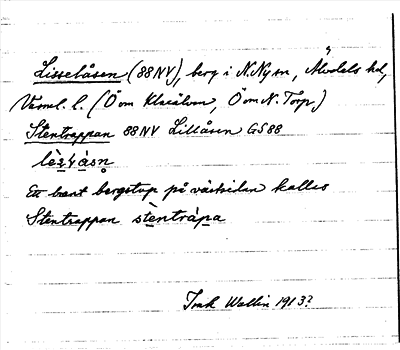 Lisselåsen (88NV), berg i N.Ny sn, Älvdals hd,
Värml. l. (Ö om Klarälven, Ö om N. Torp.)
Stentrappan 88NV Lillåsen GS88
Ett brant bergstup på västsidan kallas
Stentrappan stentràpa
Wallin 1913?